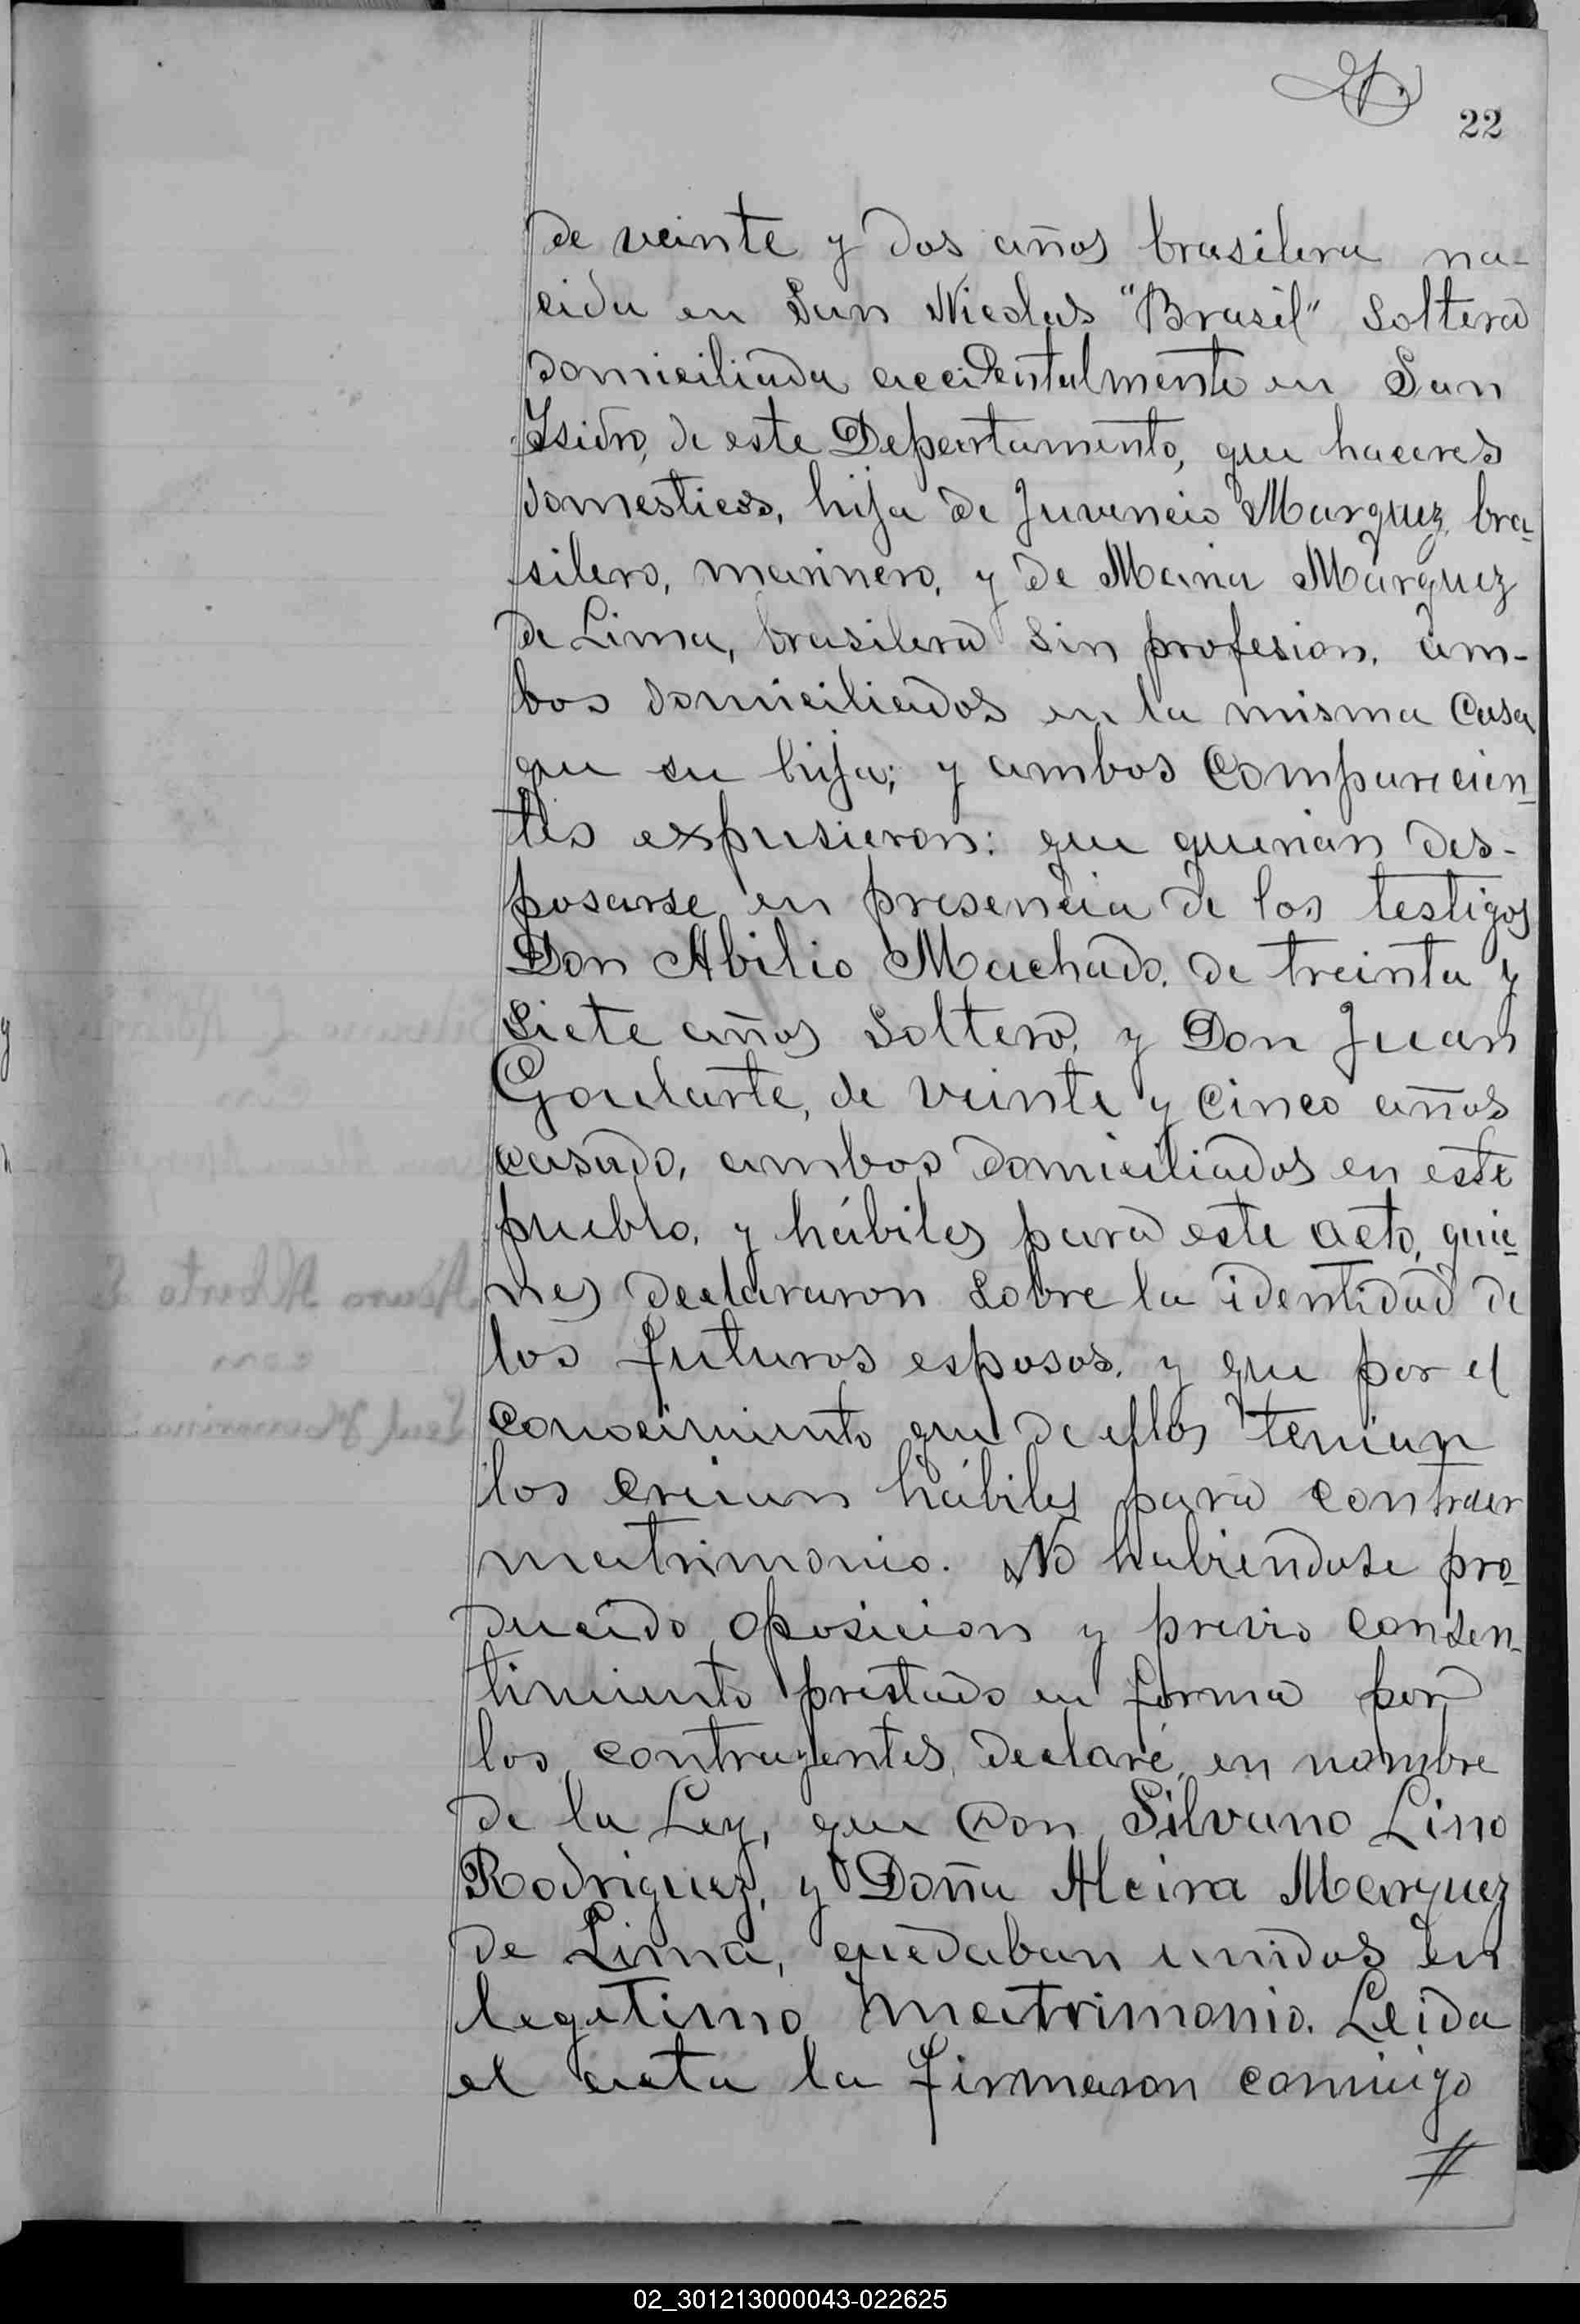 22
de veinte y dos años brasilera na-
cida en San Nicolas "Brasil" Soltera
domiciliada accidentalmente en San
Isidro, de este Departamento, que haceres
domesticos, hija de Juvencio Marquez, bra-
silero, marinero, y de Maria Márquez
de Lima, brasilera sin profesion, am-
bos domiciliados en la misma Casa
que su hija; y ambos Comparecien-
tes expusieron: que querian des-
posarse en presencia de los testigos
Don Abilio Machado, de treinta y
Siete años Soltero, y Don Juan
Goularte, de veinte y cinco años
casado, ambos domiciliados en este
pueblo, y hábiles para este acto, quie-
nes declararon sobre la identidad de
los futuros esposos, y que por el
conocimiento que de ellos tenian
los creian hábiles para contraer
matrimonio. No habiendose pro-
ducido oposicion y previo consen-
timiento prestado en forma por
los contrayentes, declaré, en nombre
de la Ley, que Don Silvano Lino
Rodriguez, y Doña Alcira Marquez
de Lima, quedaban unidos en
legitimo matrimonio. Leida
el acta la firmaron conmigo
#
02_301213000043-022625